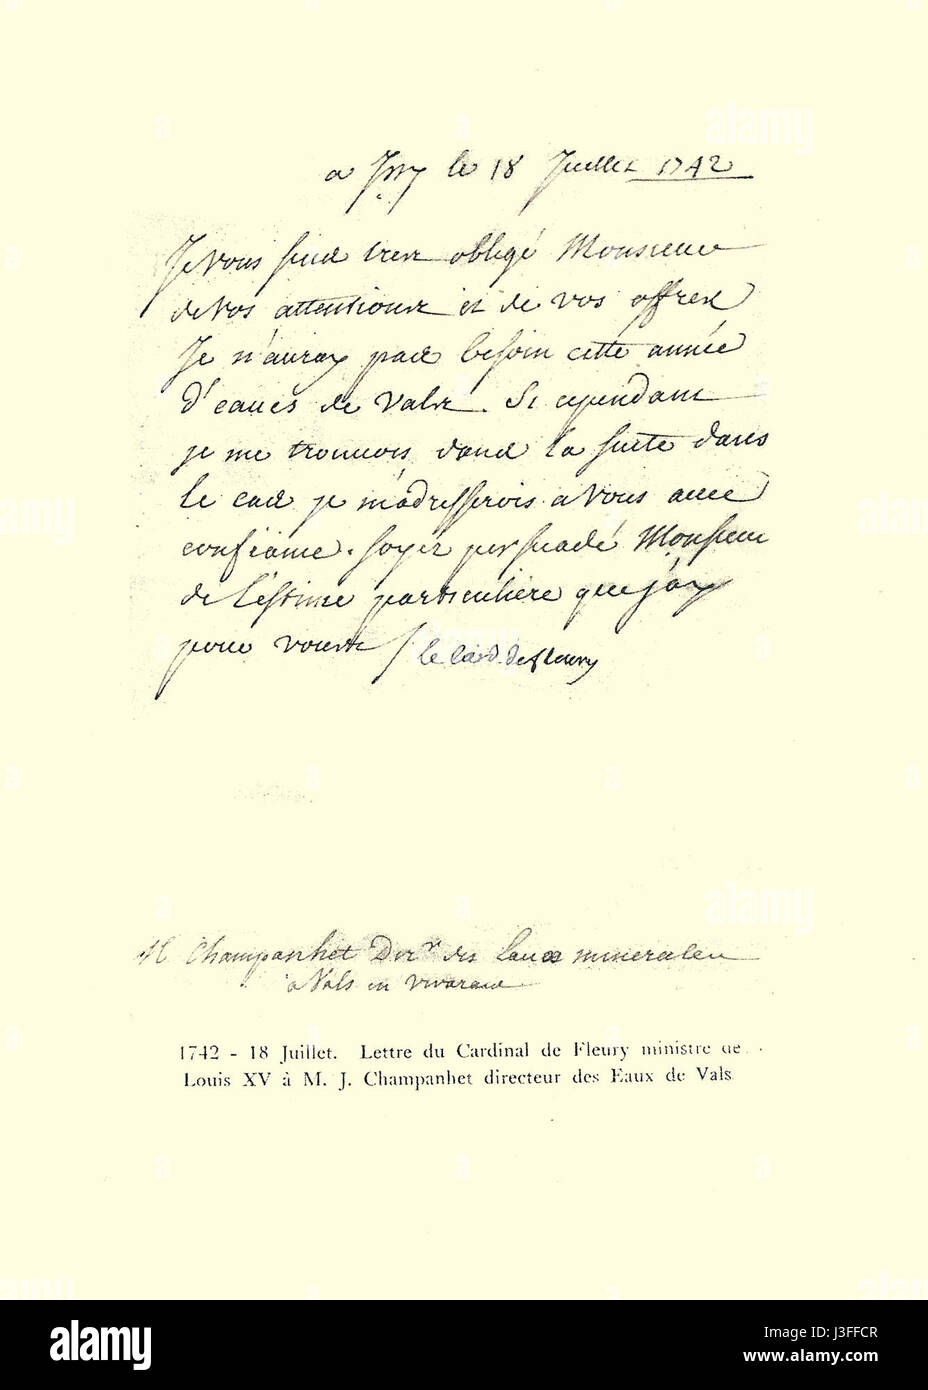 a Issy le 18 Juillet 1742
Je vous suis tres obligé Monsieur
de vos attentions et de vos offres
Je n'auray pas besoin cette année
d'eaues de Vals. Si cependant
je me trouvois dans la suite dans
le cas je m'adresserois a vous avec
confiance. soyez persuadé Monsieur
de l'estime particuliere que j'ay
pour vous / le Card. de fleury
M Champanhet Dirr. des Eaues minerales
a Vals en vivarais
1742 - 18 Juillet. Lettre du Cardinal de Fleury ministre de
Louis XV à M. J. Champanhet directeur des Eaux de Vals
alamy
Image ID: J3FFCR
www.alamy.com